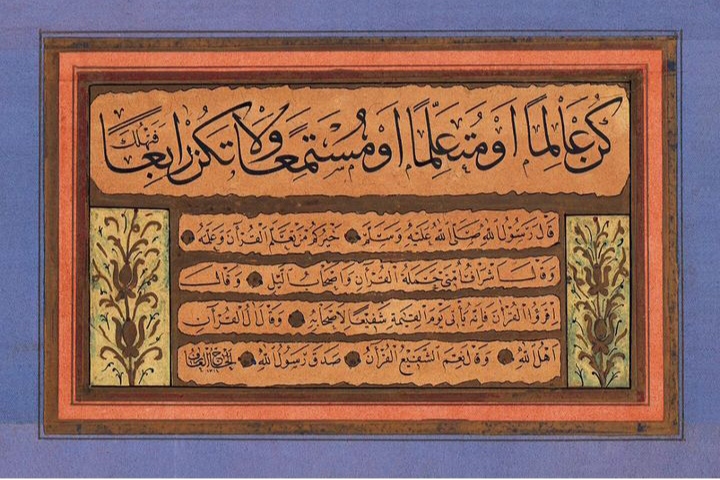 كن عالما او متعلما او مستمعا ولا تكن رابعا فتهلك
قال رسول الله صلى الله عليه وسلم خيركم من تعلم القرآن وعلمه
وقال اشراف امتي حملة القرآن واصحاب الليل وقال
اقرؤا القرآن فانه يأتي يوم القيمة شفيعا لاصحابه وقال القرآن
اهل الله وقال نعم الشفيع القرآن صدق رسول الله